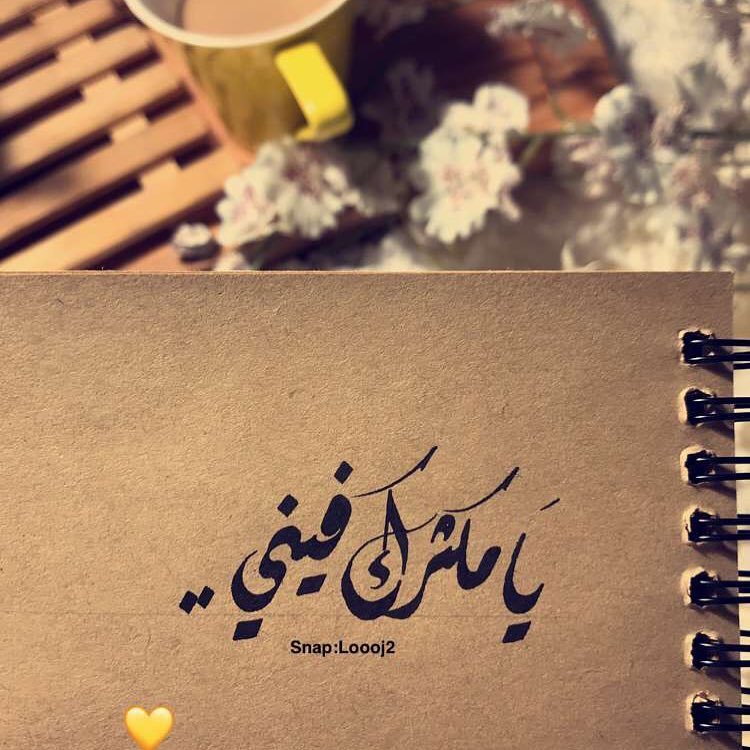 يَا مكثرك فيني ..
Snap:Loooj2